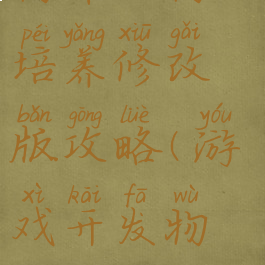 péi yǎng xiū gǎi
培养修改
bǎn gōng lüè yóu
版攻略(游
xì kāi fā wù
戏开发物